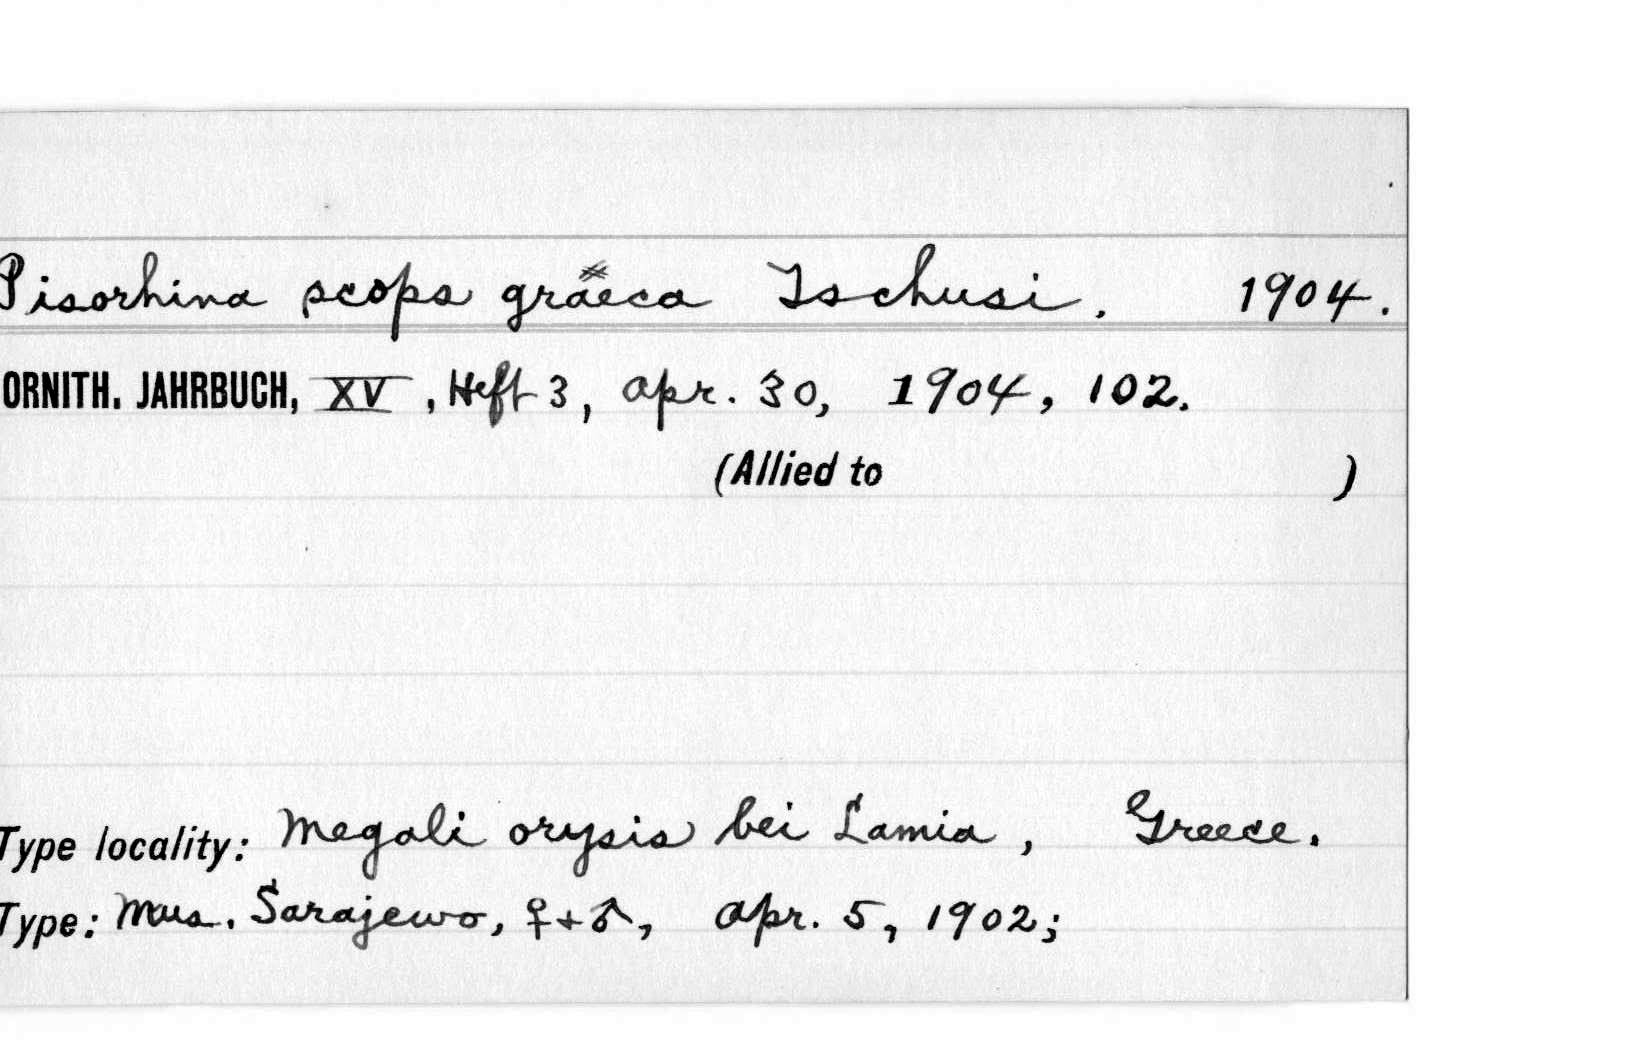 Pisorhina scops graeca Tschusi. 1904.
ORNITH. JAHRBUCH, XV, Heft 3, Apr. 30, 1904, 102.
(Allied to )
Type locality: Megali orysis bei Lamia, Greece.
Type: Mus. Sarajewo, ♀+♂, Apr. 5, 1902;